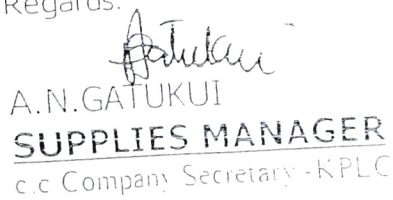 Regards.
Gatukui
A.N.GATUKUI
SUPPLIES MANAGER
c.c Company Secretary - KPLC